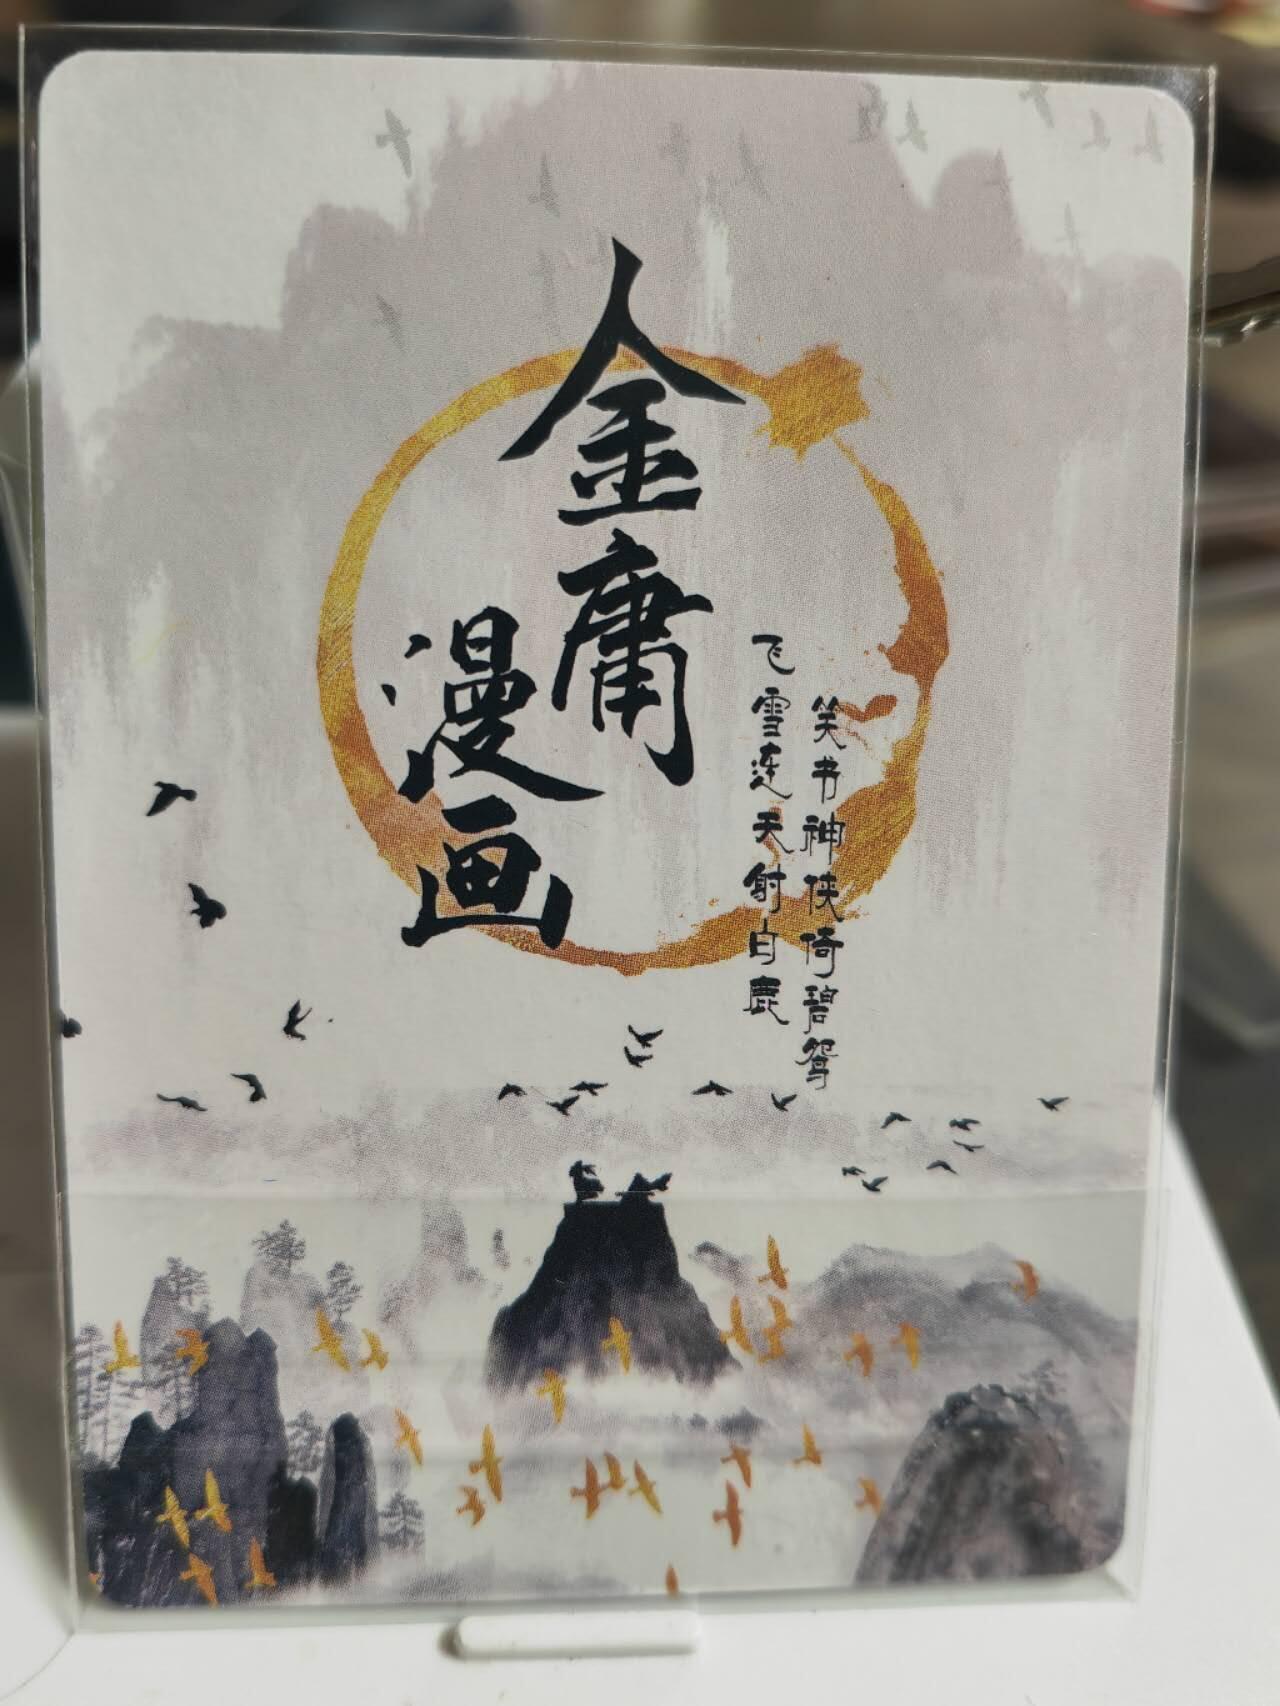 金庸
漫画
飞雪连天射白鹿
笑书神侠倚碧鸳